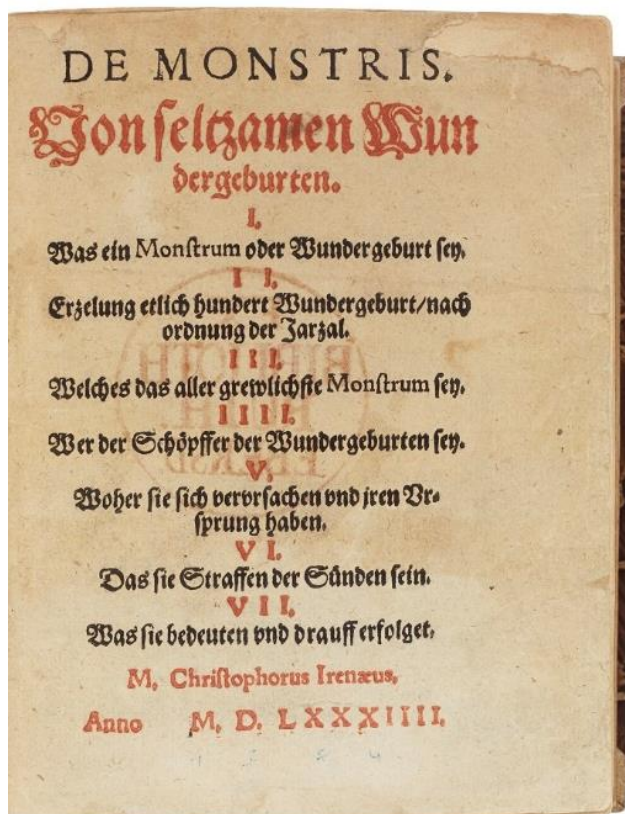 DE MONSTRIS.
Von ſeltzamen Wun
dergeburten.
I.
Was ein Monſtrum oder Wundergeburt ſey.
II.
Erzelung etlich hundert Wundergeburt/nach
ordnung der Jarzal.
III.
Welches das aller grewlichſte Monſtrum ſey.
IIII.
Wer der Schöpffer der Wundergeburten ſey.
V.
Woher ſie ſich vervrſachen vnd jren Vr-
ſprung haben.
VI.
Das ſie Straffen der Sünden ſein.
VII.
Was ſie bedeuten vnd drauff erfolget.
M. Chriſtophorus Irenæus.
Anno M. D. LXXXIIII.